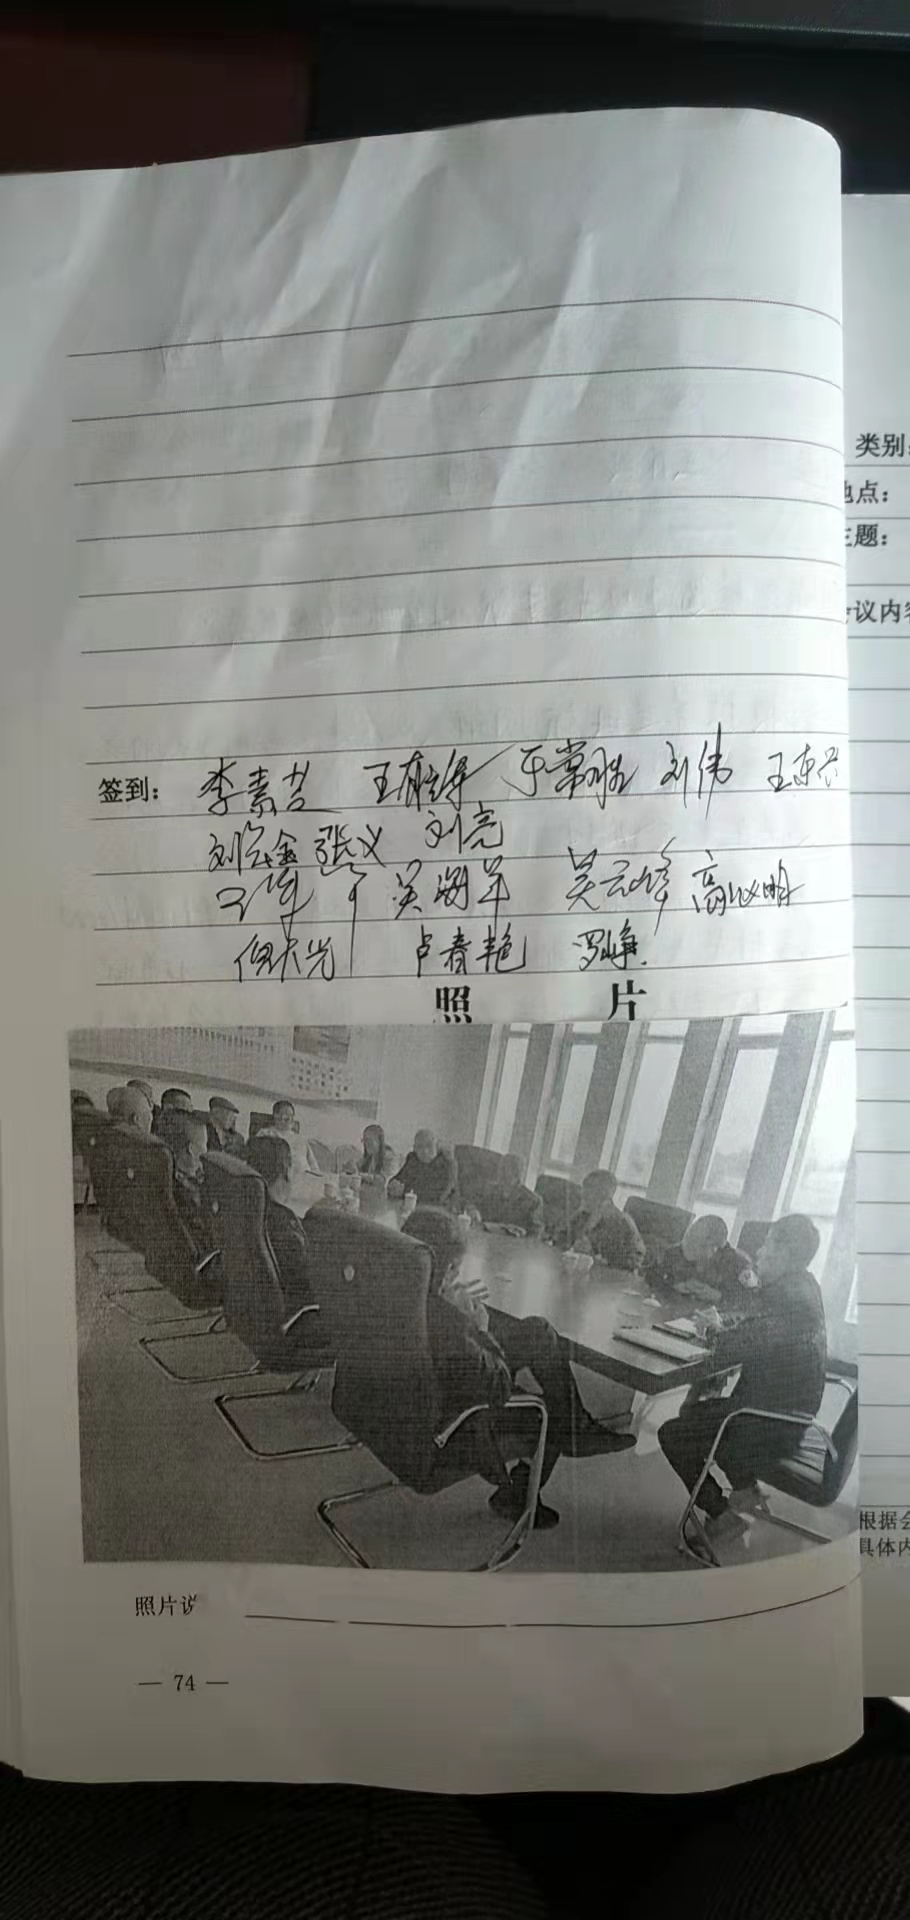 类别:
地点:
主题:
会议内容
签到: 李素芳 王有军 于常胜 刘伟 王东兴
刘宝鑫 张义 刘亮
吴海军 吴云峰 高仪明
但大光 卢春艳 罗峥
照 片
根据会
具体内
照片说
— 74 —